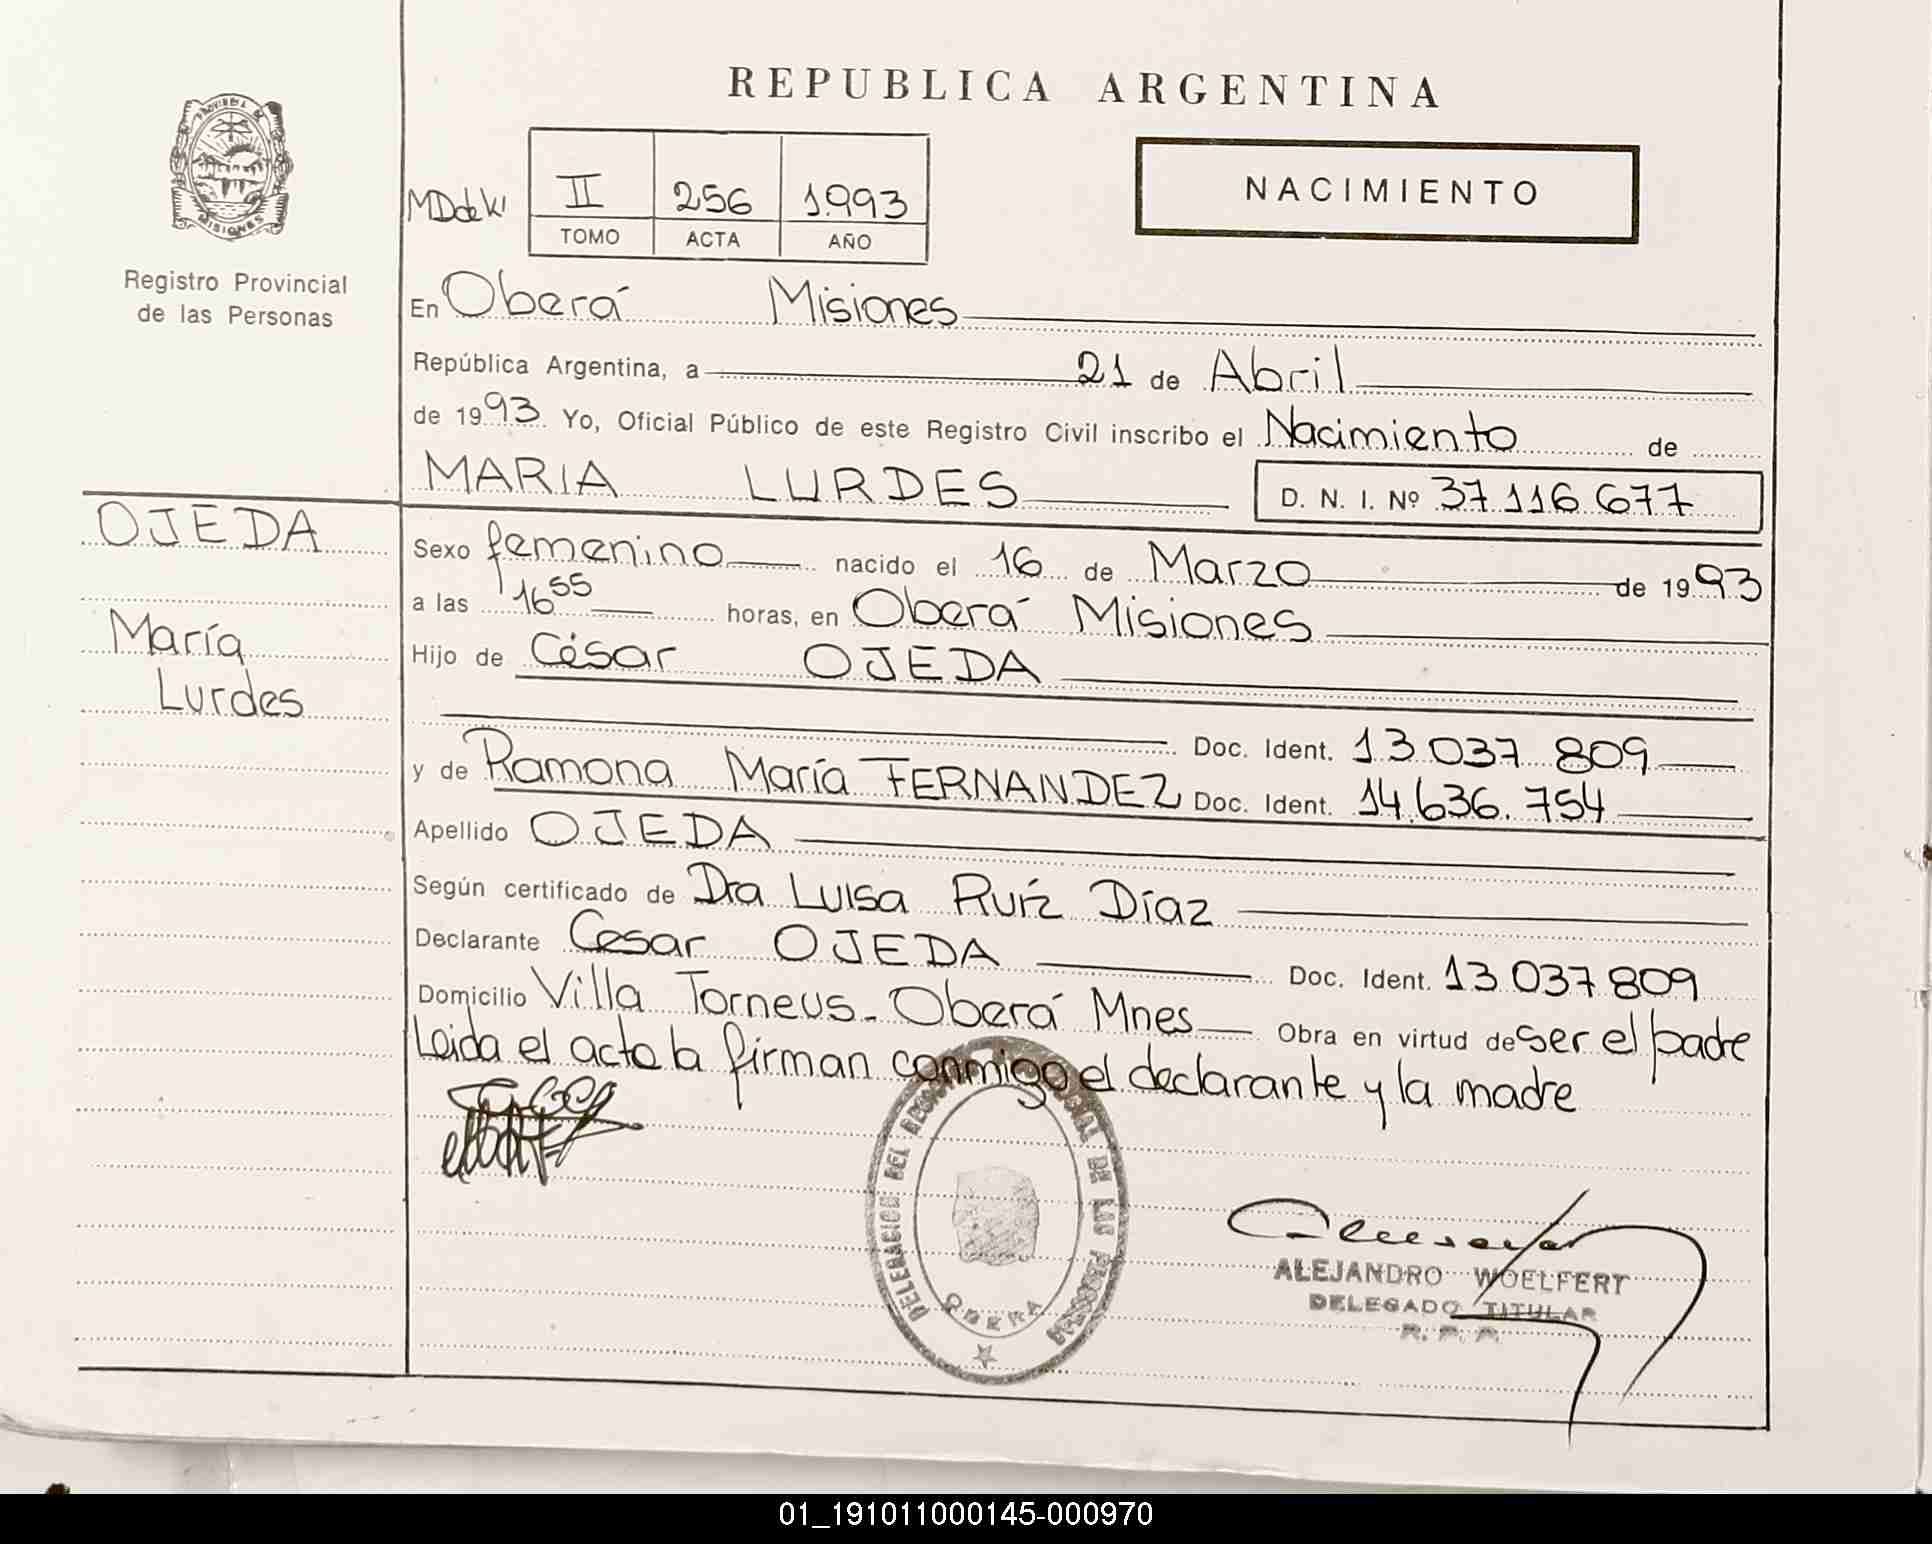 REPUBLICA ARGENTINA
PROVINCIA DE
MISIONES
Registro Provincial
de las Personas
II 256 1.993
TOMO ACTA AÑO
NACIMIENTO
En Oberá Misiones
República Argentina, a 21 de Abril
de 1993 Yo, Oficial Público de este Registro Civil inscribo el Nacimiento de
MARIA LURDES D. N. I. Nº 37.116.677
OJEDA
María
Lurdes
Sexo femenino nacido el 16 de Marzo de 1993
a las 16 55 horas, en Oberá Misiones
Hijo de César OJEDA
Doc. Ident. 13.037.809
y de Ramona María FERNANDEZ Doc. Ident. 14.636.754
Apellido OJEDA
Según certificado de Dra Luisa Ruíz Díaz
Declarante Cesar OJEDA Doc. Ident. 13.037.809
Domicilio Villa Torneus - Oberá Mnes Obra en virtud de ser el padre
Leida el acta la firman conmigo el declarante y la madre
DELEGACION DEL REGISTRO PROVINCIAL DE LAS PERSONAS
OBERA
ALEJANDRO WOELFERT
DELEGADO TITULAR
R. P. P.
01_191011000145-000970